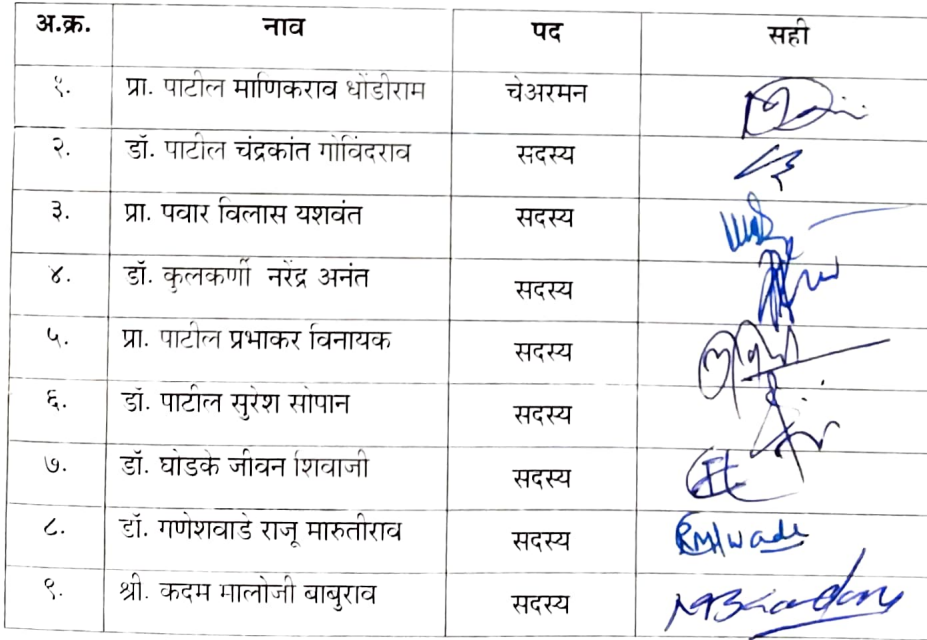 अ.क्र. नाव पद सही
१. प्रा. पाटील माणिकराव धोंडीराम चेअरमन
२. डॉ. पाटील चंद्रकांत गोविंदराव सदस्य
३. प्रा. पवार विलास यशवंत सदस्य
४. डॉ. कुलकर्णी नरेंद्र अनंत सदस्य
५. प्रा. पाटील प्रभाकर विनायक सदस्य
६. डॉ. पाटील सुरेश सोपान सदस्य
७. डॉ. घोडके जीवन शिवाजी सदस्य
८. डॉ. गणेशवाडे राजू मारुतीराव सदस्य
९. श्री. कदम मालोजी बाबुराव सदस्य